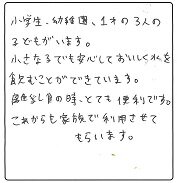 小学生、幼稚園、1才の3人の
子どもがいます。
小さな子でも安心しておいしく水を
飲むことができています。
離乳食の時、とても便利です。
これからも家族で利用させて
もらいます。